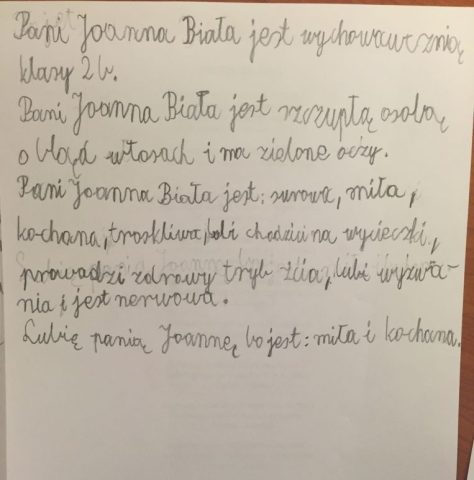 Pani Joanna Biała jest wychowawcznią
klasy 2b.
Pani Joanna Biała jest szczupłą osobą
o bląd włosach i ma zielone oczy.
Pani Joanna Biała jest: surowa, miła,
kochana, troskliwa, lubi chodzić na wycieczki,
prowadzi zdrowy tryb żcia, lubi wyzwa-
nia i jest nerwowa.
Lubię panią Joannę, bo jest: miła i kochana.